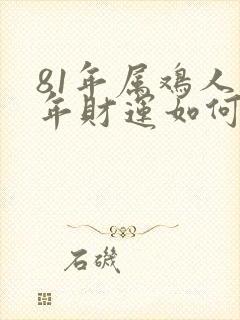 81年属鸡人
年财运如何
石磯